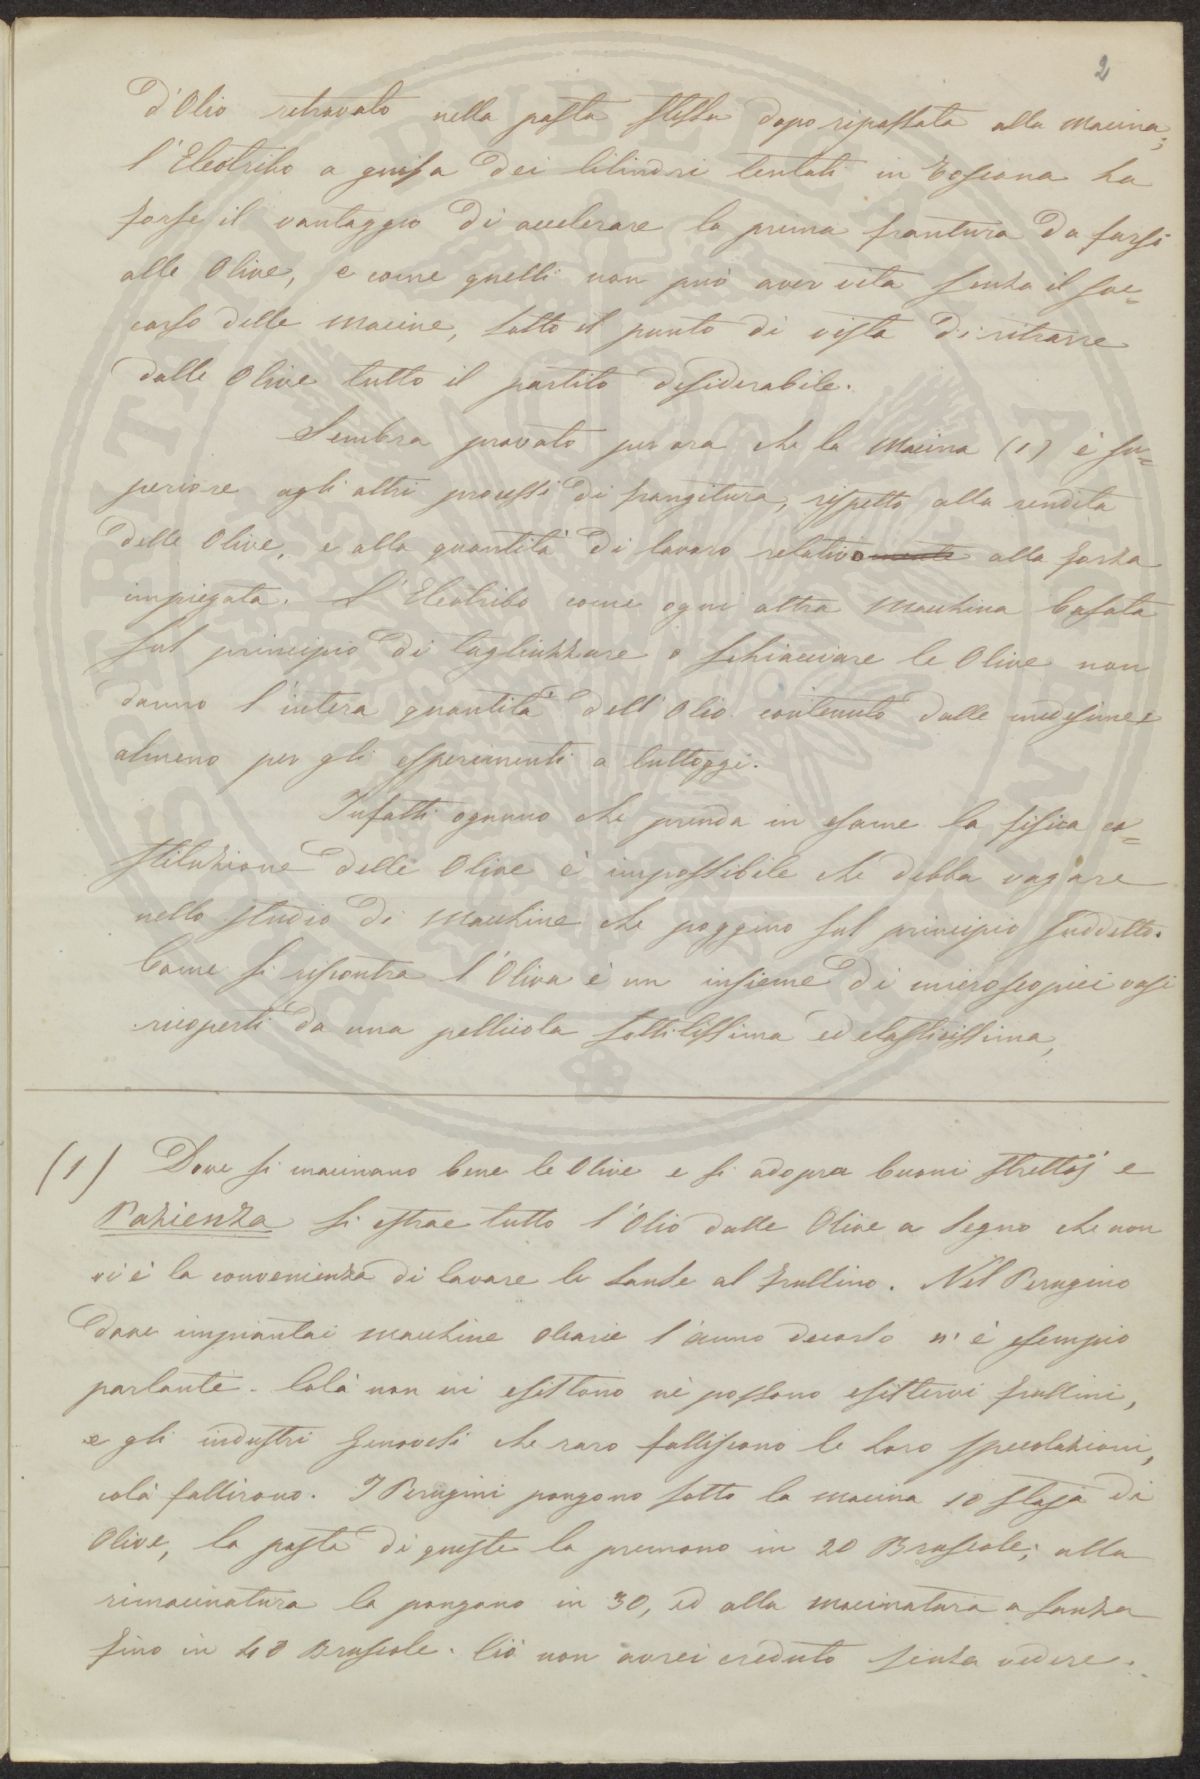 2
d'Olio ritrovato nella pasta stessa dopo ripassata alla macina;
l'Eleotribo a guisa dei Cilindri tentati in Toscana ha
forse il vantaggio di accelerare la prima frantura da farsi
alle Olive, e come quelli non può aver vita senza il soc=
corso delle macine, sotto il punto di vista di ritrarre
dalle Olive tutto il partito desiderabile.
Sembra provato per ora che la Macina (1) è su=
periore agli altri processi di frangitura, rispetto alla rendita
delle Olive, e alla quantità di lavoro relativo alla forza
impiegata. L'Eleotribo come ogni altra Macchina basata
sul principio di tagliuzzare o schiacciare le Olive non
danno l'intera quantità dell'Olio contenuto dalle medesime
almeno per gli esperimenti a tuttoggi.
Infatti ognuno che prenda in esame la fisica co=
stituzione delle Olive è impossibile che debba vagare
nello studio di Macchine che poggino sul principio suddetto.
Come si riscontra l'Oliva è un insieme di microscopici vasi
ricoperti da una pellicola sottilissima ed elasticissima,
(1) Dove si macinano bene le Olive e si adopra buoni strettoj e
Pazienza si estrae tutto l'Olio dalle Olive a segno che non
vi è la convenienza di lavare le Sanse al frullino. Nel Perugino
dove impiantai macchine Olearie l'anno decorso n'è esempio
parlante. Colà non vi esistono nè possono esistervi frullini,
e gli industri Genovesi che raro falliscono le loro speculazioni,
colà fallirono. I Perugini pongono sotto la macina 10 staja di
Olive, la pasta di queste la premono in 20 Bruscole; alla
rimacinatura la pongono in 30, ed alla macinatura a Sanza
fino in 40 Bruscole. Ciò non avrei creduto senza vedere.